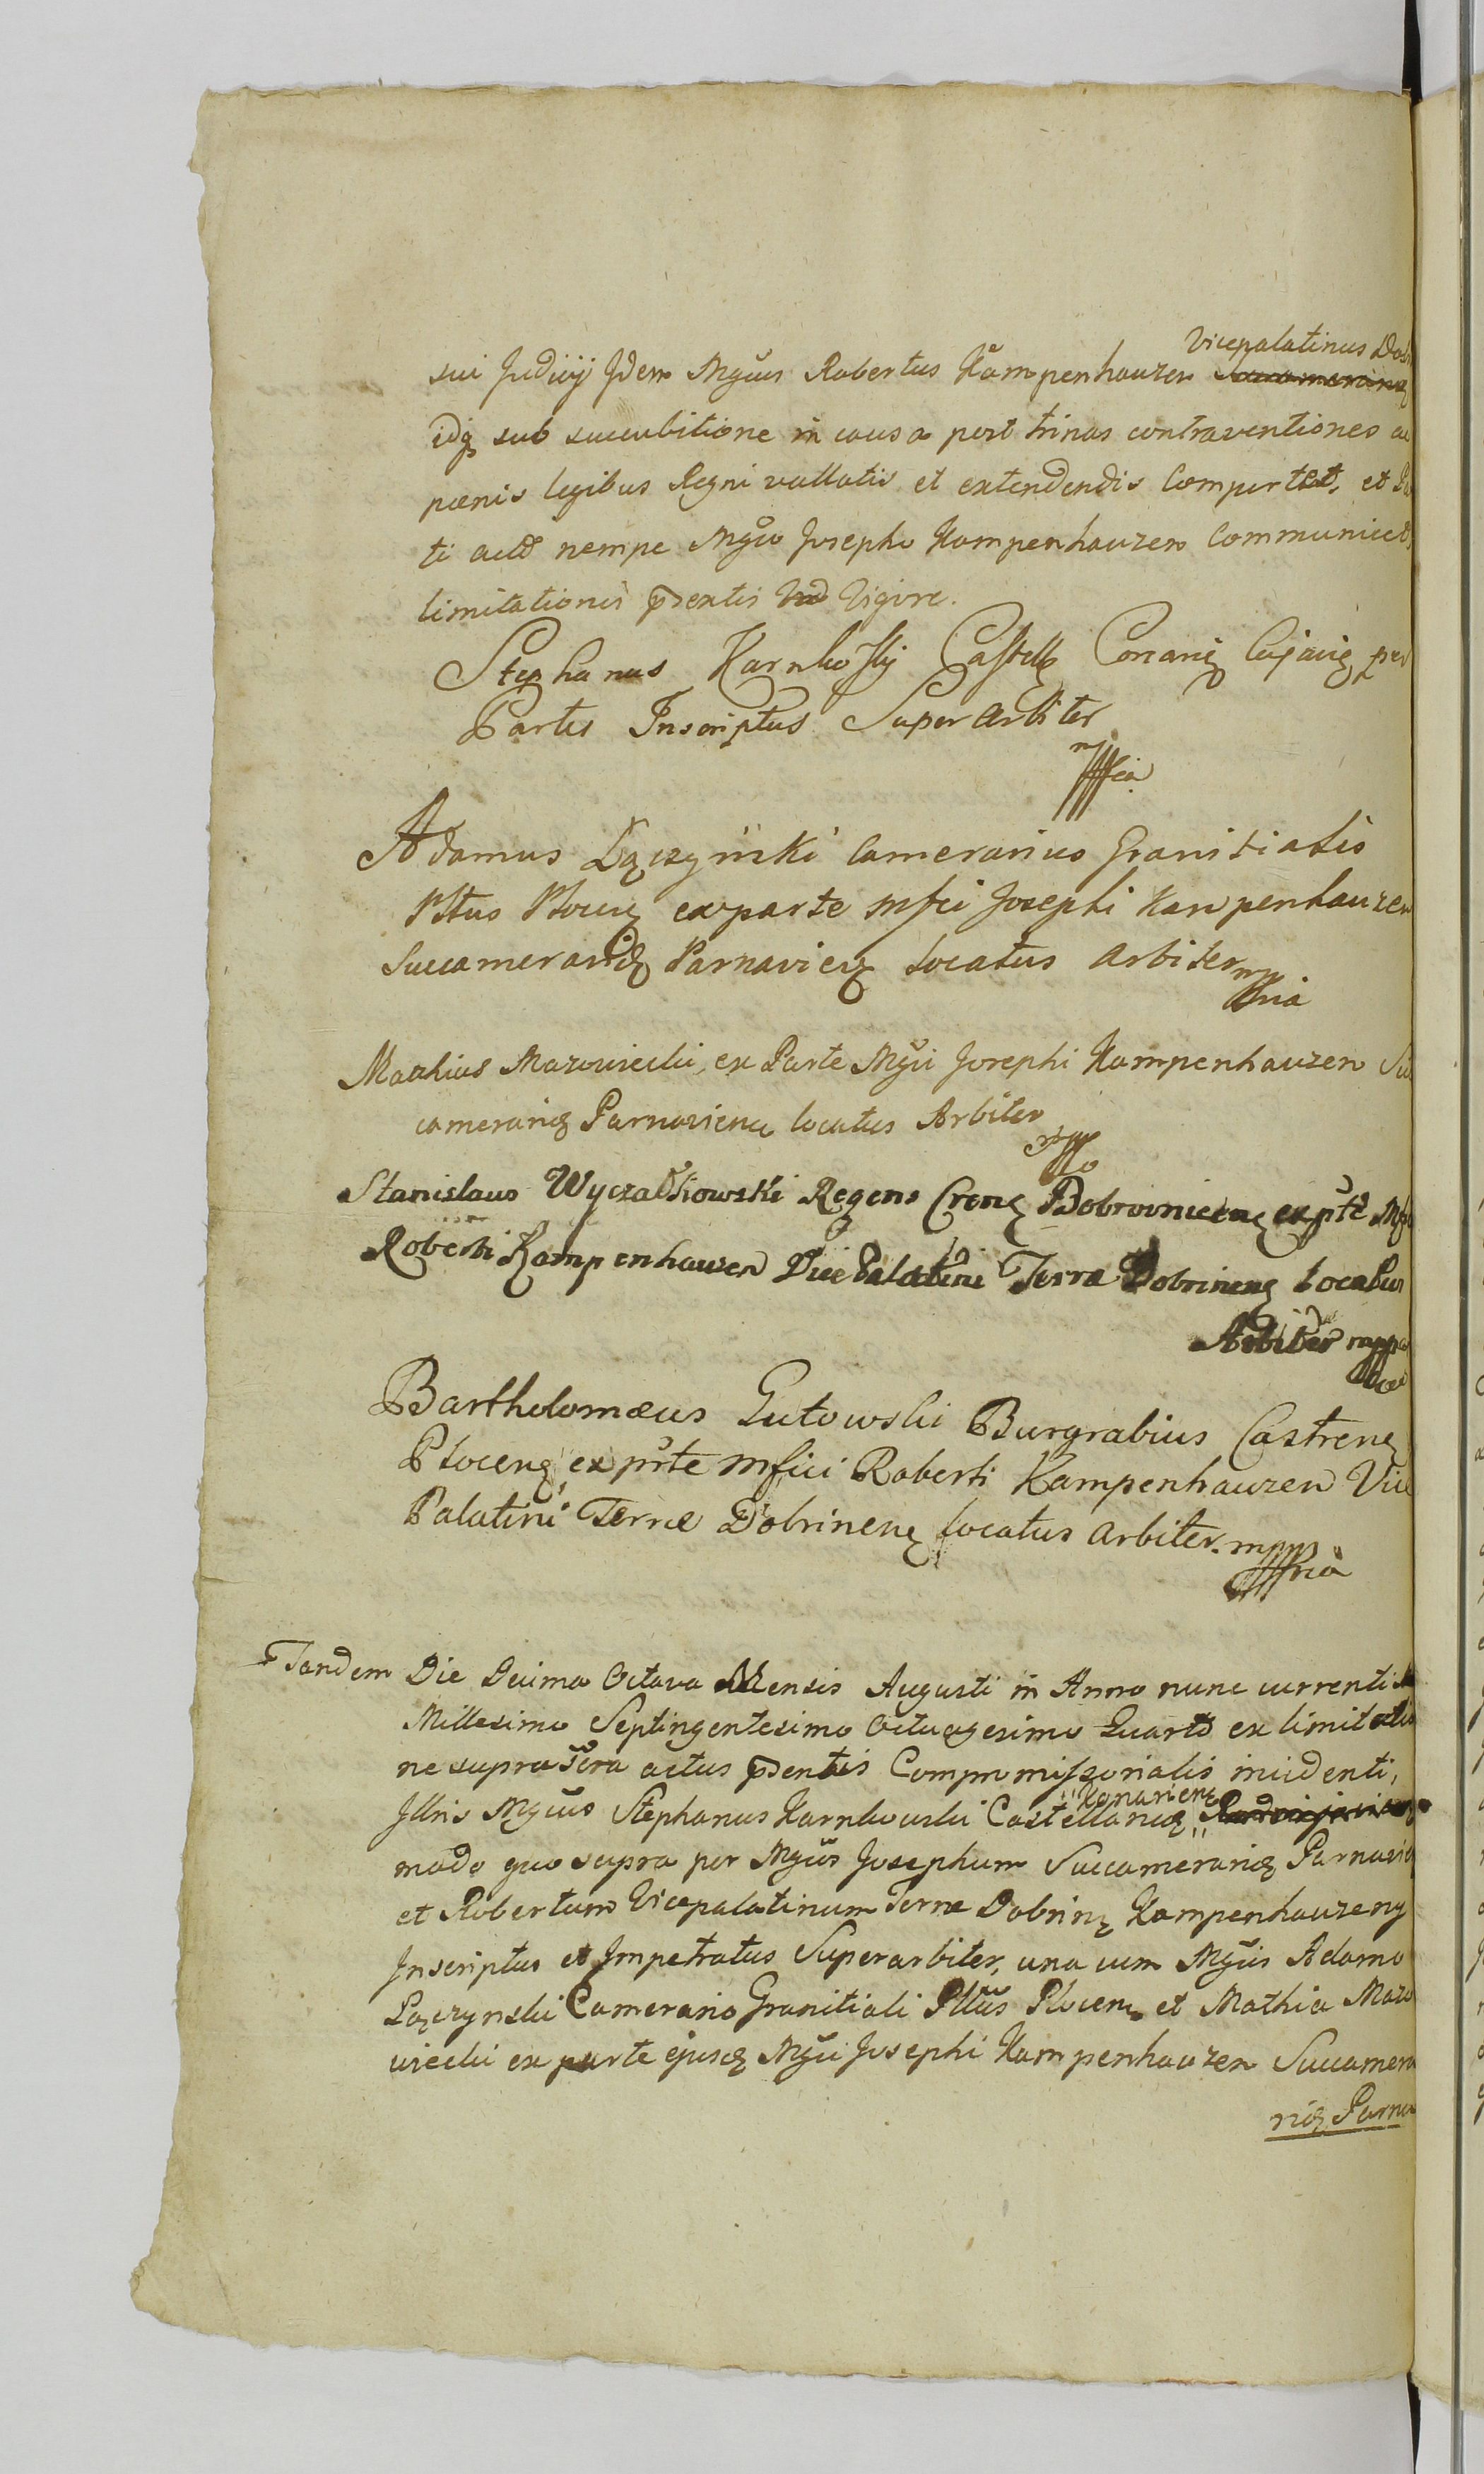 Vicepalatinus Dob
sui Judicij Idem Mgcus Robertus Kampenhauzen Succamerarius
idq sub succubitione in causa post trinas contraventiones ac
pœnis legibus Regni vallatis et extendendis Comportet, et
ti actd nempe Mgco Josepho Kampenhauzen Communicet
limitationis pñtis Vigore.
Stephanus Karnkoskj Castell Conarię Cujavię per
Partes Inscriptus Superarbiter
mppria
Adamus Łączyński Camerarius Granitialis
Pltus Płocę ex parte mfci Josephi Kanpenhauzen
Succamerarię Parnavieñ locatus Arbiter mppria
Mathias Mazowiecki, ex Parte Mgci Josephi Kampenhauzen Suc
camerarię Parnaviensis locatus Arbiter
mpp
Stanislaus Wyczałkowski Regens Crenę Bobrownicenę ex pte Mfci
Roberti Kampenhauzen Vice Palatini Terræ Dobrinenę locatus
Arbiter mppa
Bartholomæus Gutowski Burgrabius Castrenę
Plocenę ex prte mfici Roberti Kampenhauzen Vice
Palatini Terræ Dobrinenę locatus Arbiter. mppria
Tandem Die Decima Octava Mensis Augusti in Anno nunc currenti
Millesimo Septingentesimo Octuagesimo Quarto ex limitatio
ne suprascra actus pñtis Compromissorialis incidenti,
Konarienę
Illris Mgcus Stephanus Karnkowski Castellanię
modo quo supra per Mgcos Josephum Succamerarię Parnavię
et Robertum Vicepalatinum Terræ Dobrinę Kampenhauzeny
Inscriptus et Impetratus Superarbiter, una cum Mgcis Adamo
Łączynski Camerario Granitiali Pltus Plocenę et Mathia Mazo
wiecki ex parte ejusdę Mgci Josephi Kampenhauzen Succamera
rię Parna